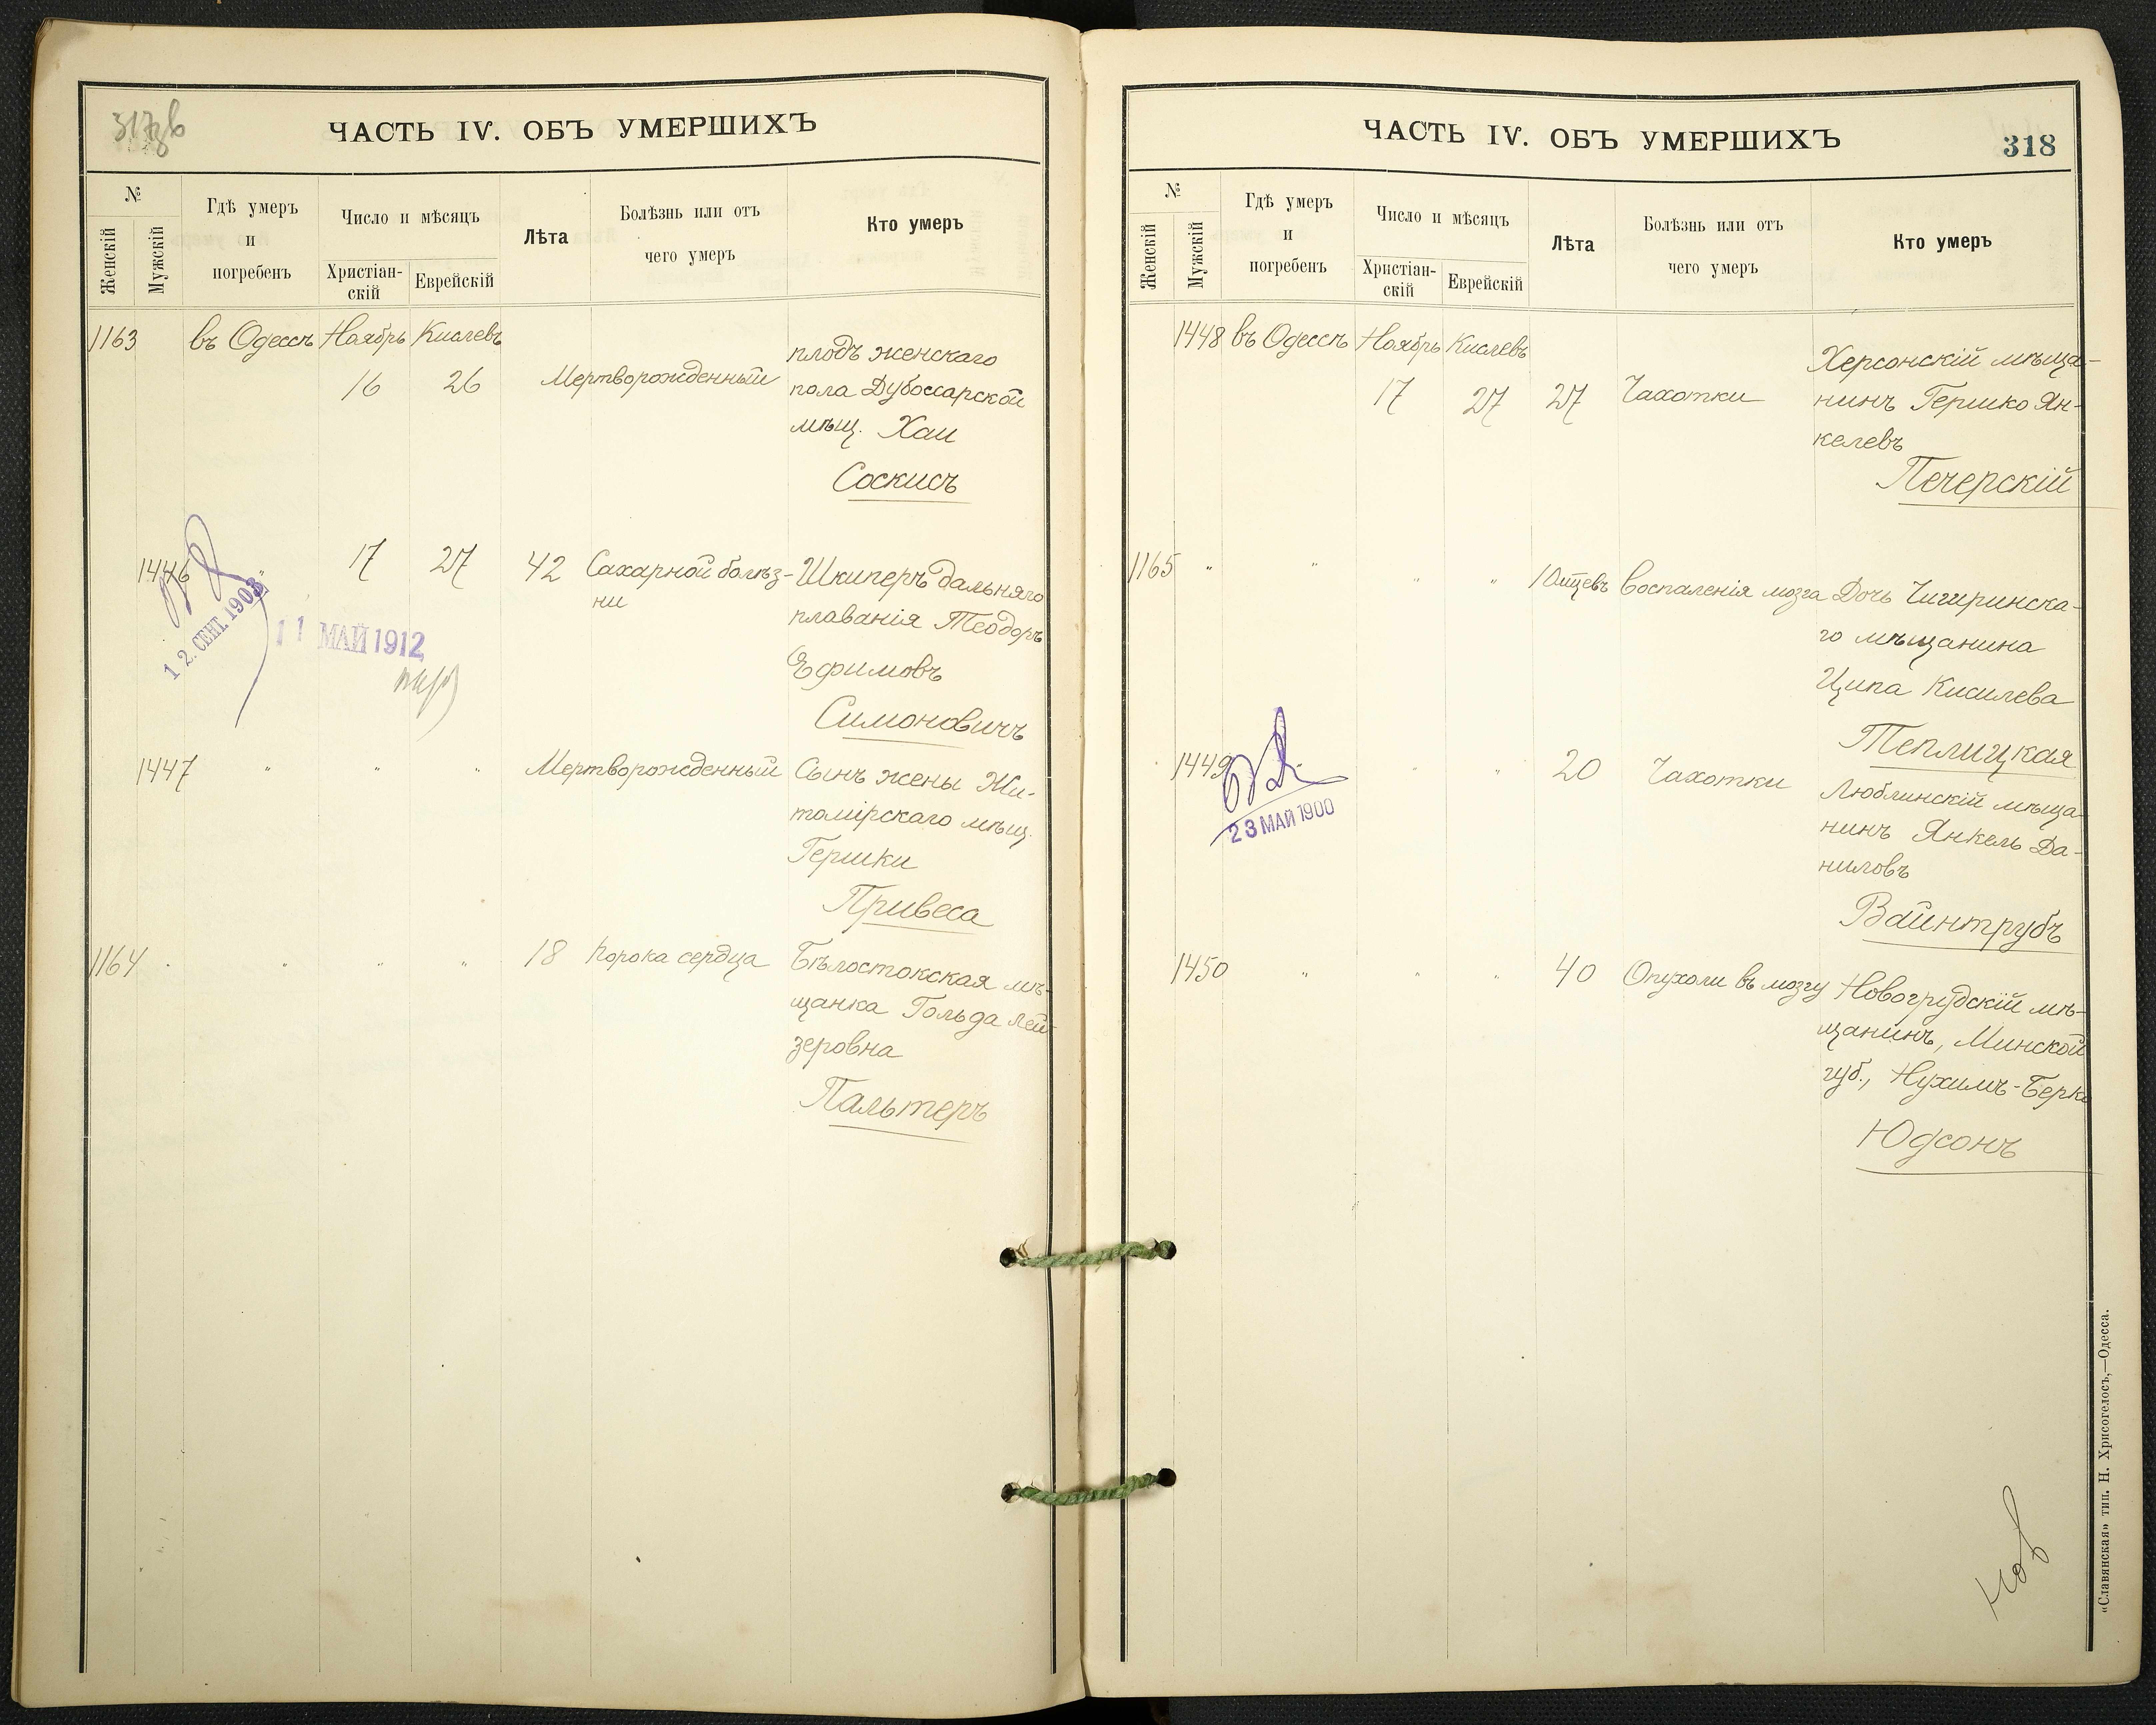 317об
ЧАСТЬ IV. ОБЪ УМЕРШИХЪ
№
Женскій
Мужскій
Гдѣ умеръ
и
погребенъ
Число и мѣсяцъ
Христіан-
скій
Еврейскій
Лѣта
Болѣзнь или отъ
чего умеръ
Кто умеръ
1163 въ Одессѣ Ноябрь Кислевъ
16 26 Мертворожденный
плодъ женскаго
пола Дубоссарской
мѣщ. Хаи
Соскисъ
1446 " 17 27 42 Сахарной болѣз-
ни
Шкиперъ дальняго
плаванія Теодоръ
Ефимовъ
Симоновичъ
12. СЕНТ. 1903
11 МАЙ 1912
1447 " " " Мертворожденный
Сынъ жены Жи-
томірскаго мѣщ.
Гершки
Привеса
1164 " " " " 18 Порока сердца
Бѣлостокская мѣ-
щанка Гольда Лей-
зеровна
Пальтеръ
ЧАСТЬ IV. ОБЪ УМЕРШИХЪ
318
№
Женскій
Мужскій
Гдѣ умеръ
и
погребенъ
Число и мѣсяцъ
Христіан-
скій
Еврейскій
Лѣта
Болѣзнь или отъ
чего умеръ
Кто умеръ
1448 въ Одессѣ Ноябрь Кислевъ
17 27 27 Чахотки
Херсонскій мѣща-
нинъ Гершко Ян-
келевъ
Печерскій
1165 " " " " Воспаленія мозга
Дочь Чигиринска-
го мѣщанина
Ципа Кисилева
Теплицкая
1449 " " 20 Чахотки
Люблинскій мѣща-
нинъ Янкель Да-
ниловъ
Вайнтрубъ
23 МАЙ 1900
1450 " " " 40 Опухоли въ мозгу
Новогрудскій мѣ-
щанинъ, Минской
губ., Нухимъ-Берко
Юдсонъ
«Славянская» тип. Н. Хрисогелосъ,—Одесса.